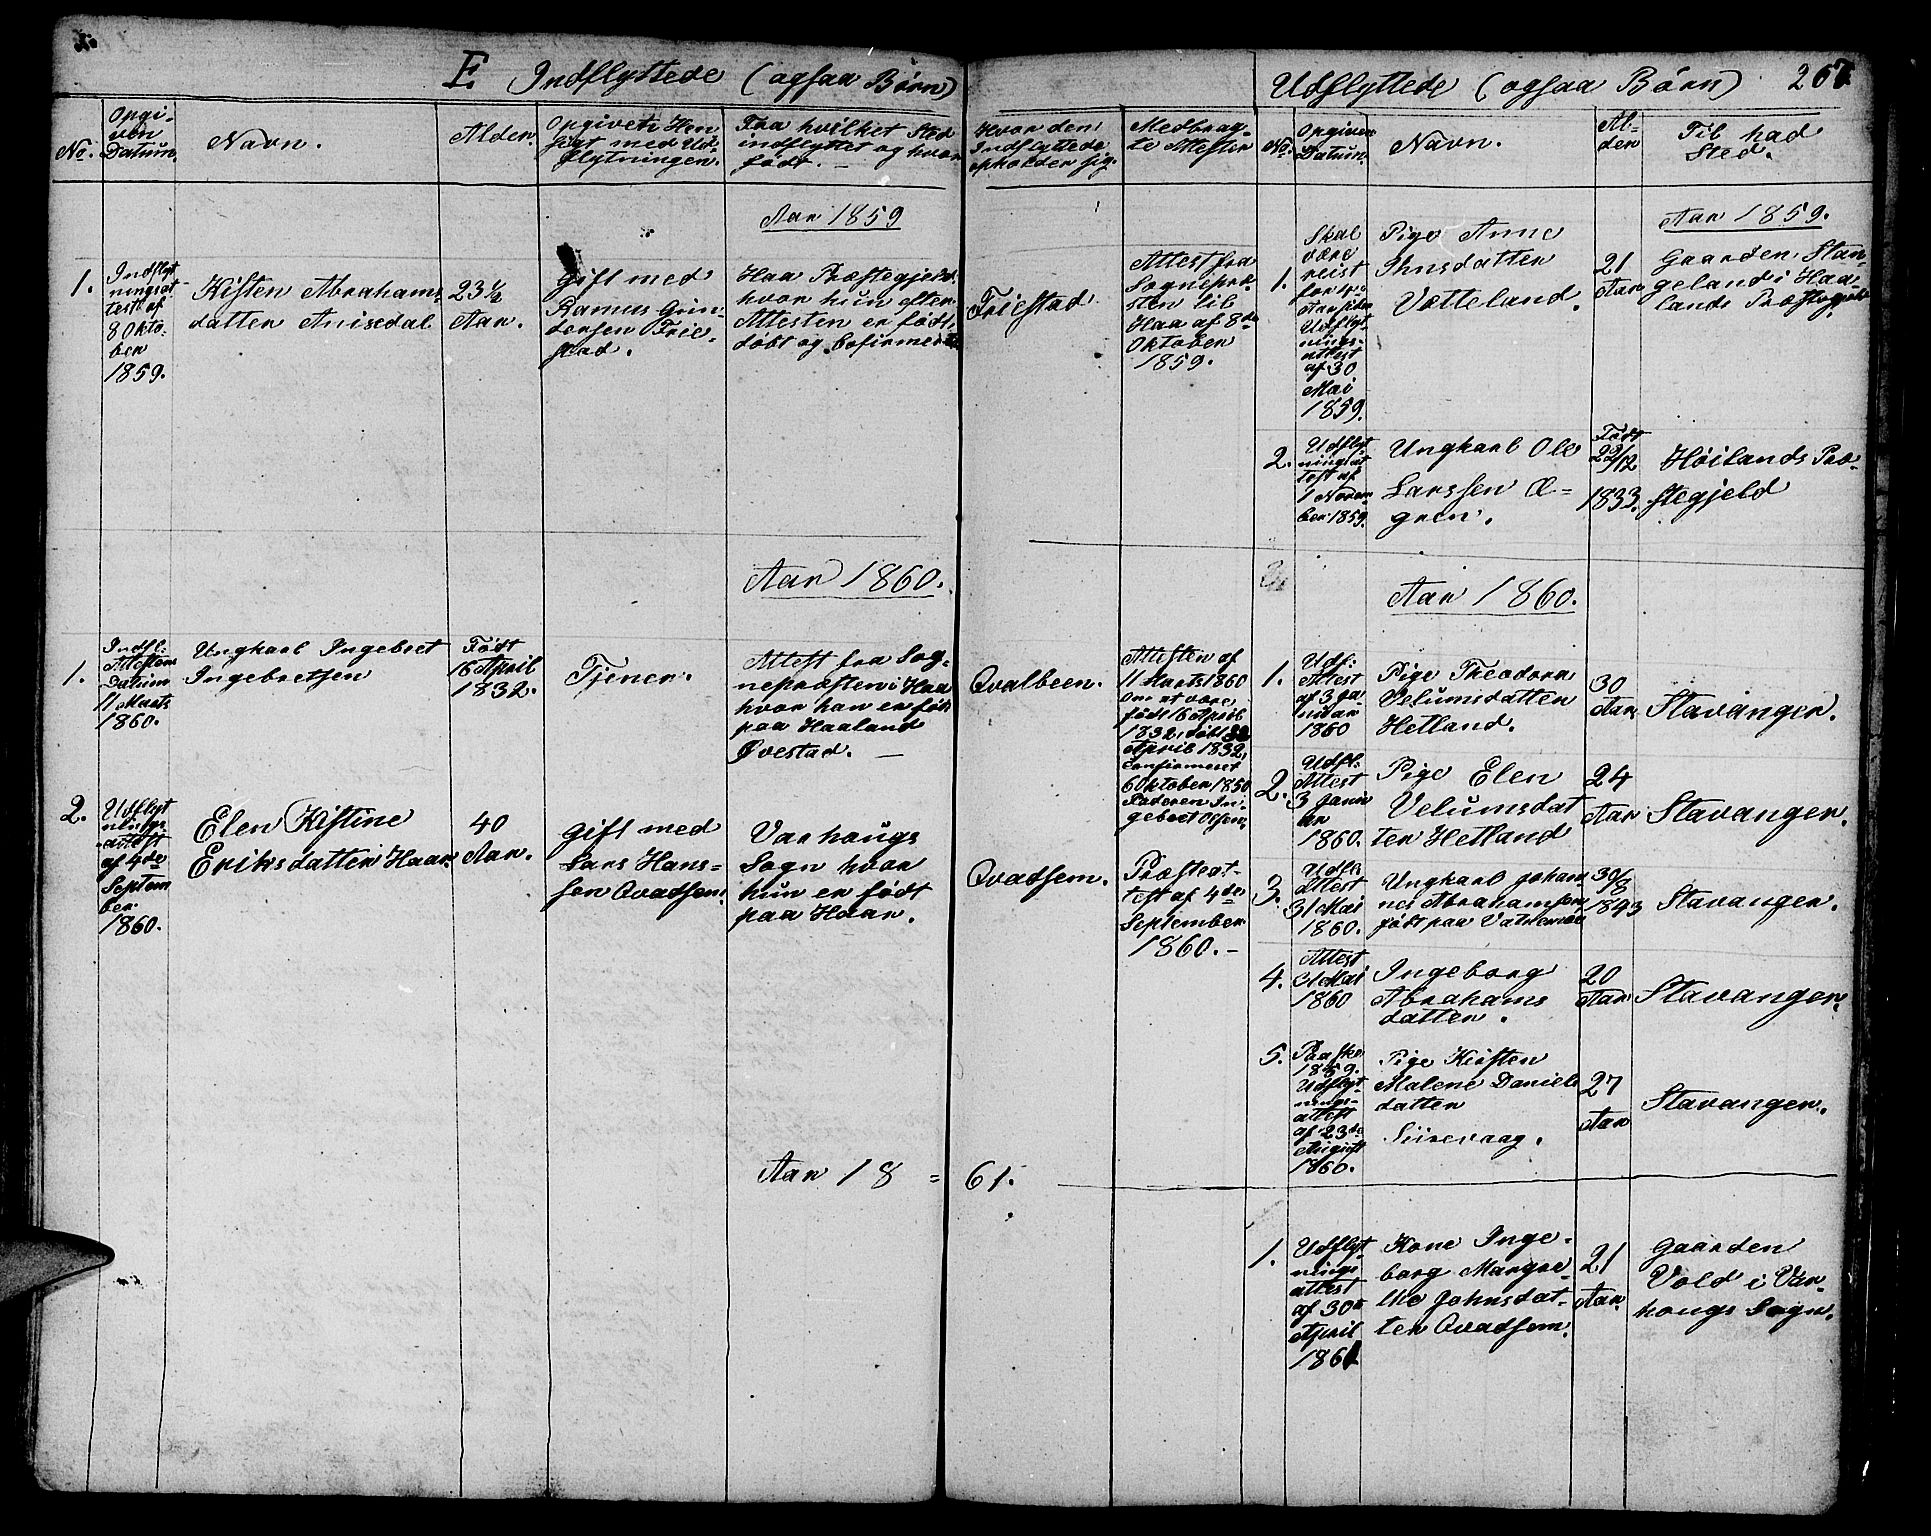 E. Indflyttede (ogsaa Børn)
No.
Opgi-
ven
Datum.
Navn.
Alder.
Opgivets Hen
sigt med Ud-
flytningen.
Fra hvilket Sted
indflyttet og hvor
født. —
Hvor den
Indflyttede
opholder sig.
Medbrag-
te Attester
Aar 1859
1.
Indflyt-
ningsat-
test af
8 Okto-
ber
1859.
Kisten Abrahams-
datter Anisedal
23 ½
Aar.
Gift med
Rasmus Gun-
dersen Frie-
stad.
Haa Præstegjeld
hvor hun efter
Attesten er født,
døbt og Cofirmeret
Friestad
Attest fra
Sognepræ-
sten til
Haa af 8de
Oktober
1859.
Aar 1860.
1.
Indfl.
Attestens
Datum
11 Marts
1860.
Ungkarl Ingebret
Ingebretsen
Født
16 April
1832.
Tjener.
Attest fra Sog-
nepræsten i Haa
hvor han er født
paa Haaland
Øvestad. —
Qvalbeen.
Attesten af
11 Marts 1860
om at være
født 16 April
1832, døbt 22
April 1832,
Confirmeret
6 Oktober 1850
Faderen In-
gebret Olsen,
2.
Udflyt
nings
attest
af 4de
Septem
ber
1860.
Elen Kistine
Eriksdatter Haar.
40
Aar.
gift med
Lars Hans-
sen Qvadsem.
Varhougs
Sogn hvor
hun er født
paa Haar.
Qvadsem.
Præsteat-
test af 4de
September
1860. —
Aar 18 = 61.
Udflyttede (ogsaa Børn) 267
No.
Opgiven
Datum.
Navn.
Al-
der
Til had
Sted.
Aar 1859.
1.
Skal
være
reist
Udflyt
nings-
attest
af 30
Mai
1859.
Pige Anne
Ihnsdatter
Vætteland.
21
Aar
Gaarden Stan-
geland i Haa-
lands Præstegjeld
2.
Udflyt
ningsat
test af
1 Novem
ber 1859.
Ungkarl Ole
Larssen Æ-
gren.
Født
22/12
1833.
Høilands Præ-
stegjeld
Aar 1860.
1.
Udf:
Attest
af 3 Ja
nuar
1860
Pige Theodora
Velumsdatter
Hetland.
30
Aar
Stavanger.
2.
Udfl.
Attest
3 Janu
ar
1860.
Pige Elen
Velumsdat
ter Hetland
24
Aar
Stavanger.
3.
Udfl
Attest
31 Mai
1860.
Ungkarl Johan-
nes Abrahamsen
født paa Vatnemoe
30/8
1843
Stavanger.
4.
Attest
31 Mai
1860
Ingeborg
Abrahams
datter.
20
Aar
Stavanger.
5.
Paaske
1859.
Udflyt
nings-
attest
af 23de
August
1860.
Pige Kirsten
Malene Daniels
datter
Siirevaag.
27
Aar
Stavanger.
1.
Udflyt
nings
attest
af 30te
April
1861
Kone Inge-
borg Margre-
the Johnsdat-
ter Qvadsem.
21
Aar.
Gaarden
Vold i Var-
hougs Sogn.